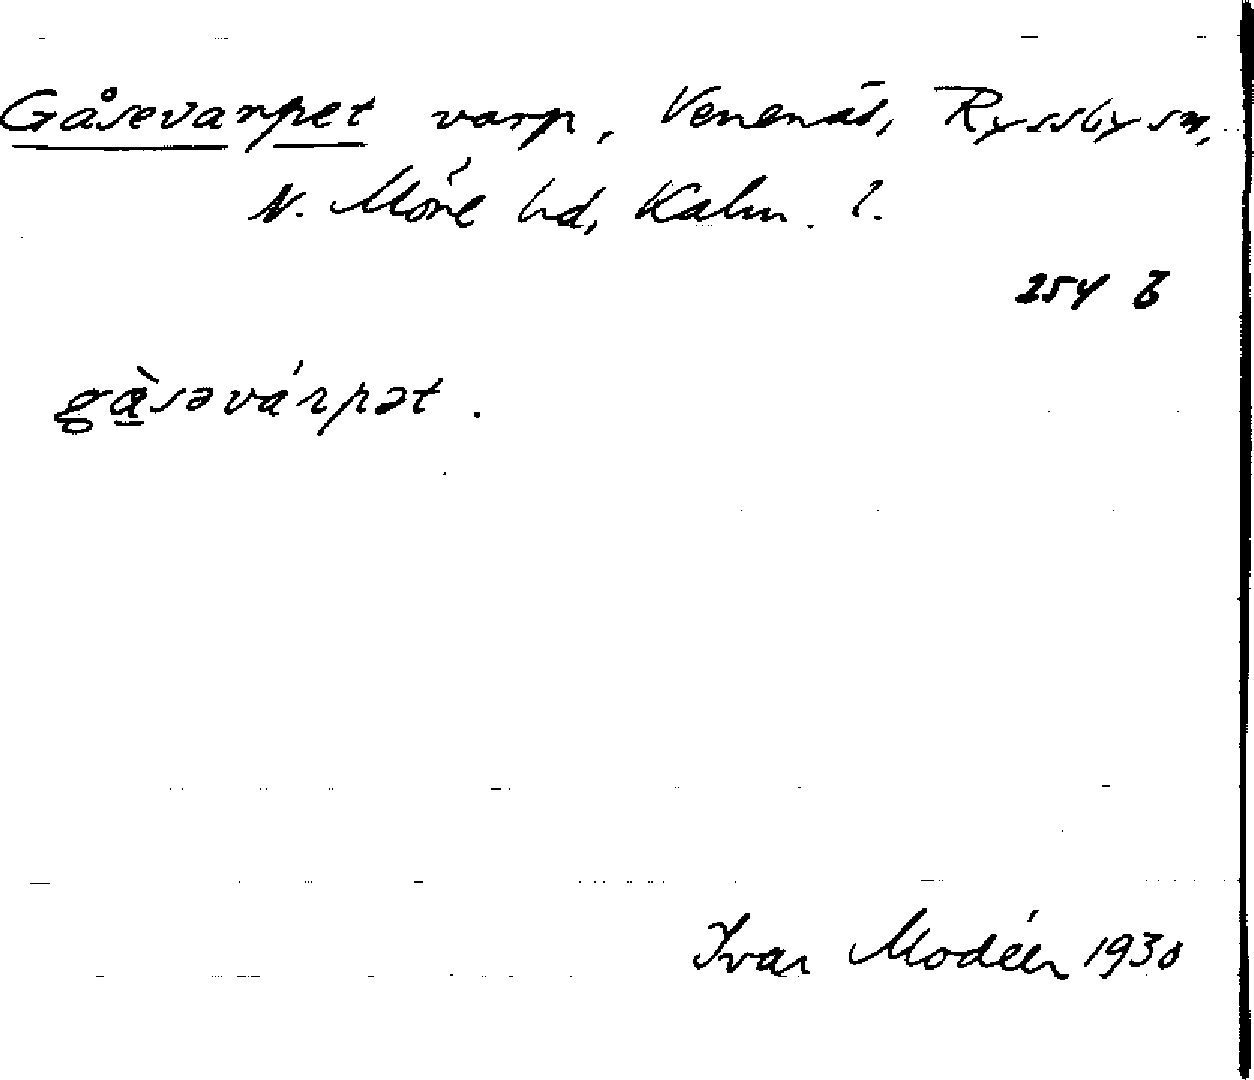 Gåsevarpet varp, Venenäs, Ryssby sn,
N. Möre hd, Kalm. l.
254 b
gå̀səvárpət.
Ivar Modéer 1930